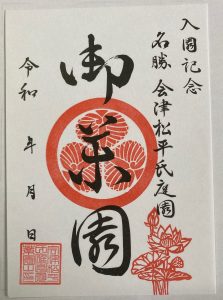 入園記念
名勝 会津松平氏庭園
御薬園
令和 年 月 日